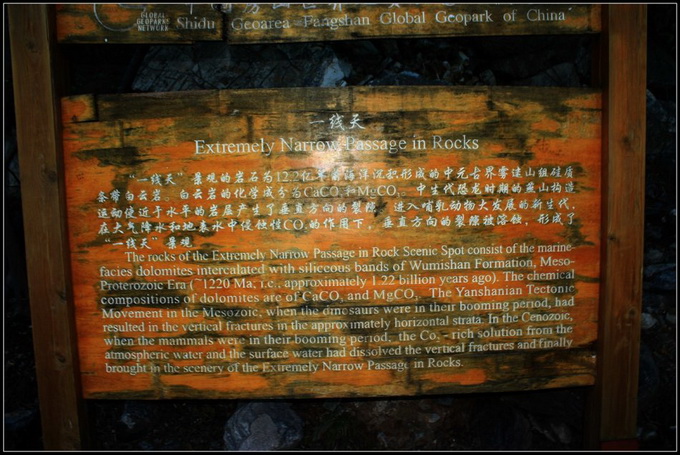 GLOBAL
GEOPARKS
NETWORK
Shidu Geoarea Fangshan Global Geopark of China
一线天
Extremely Narrow Passage in Rocks
“一线天”景观的岩石为12.2亿年前海洋沉积形成的中元古界雾迷山组硅质
条带白云岩。白云岩的化学成分为CaCO₃和MgCO₃。中生代恐龙时期的燕山构造
运动使近于水平的岩层产生了垂直方向的裂隙。进入哺乳动物大发展的新生代,
在大气降水和地表水中侵蚀性CO₂的作用下,垂直方向的裂隙被溶蚀,形成了
“一线天”景观
The rocks of the Extremely Narrow Passage in Rock Scenic Spot consist of the marine-
facies dolomites intercalated with siliceous bands of Wumishan Formation, Meso-
Proterozoic Era (~1220 Ma, i.e., approximately 1.22 billion years ago). The chemical
compositions of dolomites are of CaCO₃ and MgCO₃. The Yanshanian Tectonic
Movement in the Mesozoic, when the dinosaurs were in their booming period, had
resulted in the vertical fractures in the approximately horizontal strata. In the Cenozoic,
when the mammals were in their booming period, the Co₂ - rich solution from the
atmospheric water and the surface water had dissolved the vertical fractures and finally
brought in the scenery of the Extremely Narrow Passage in Rocks.